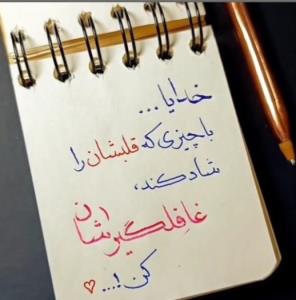 خدایا...
با چیزی که قلبشان را
شاد کند،
غافلگیرشان
کن!...♡